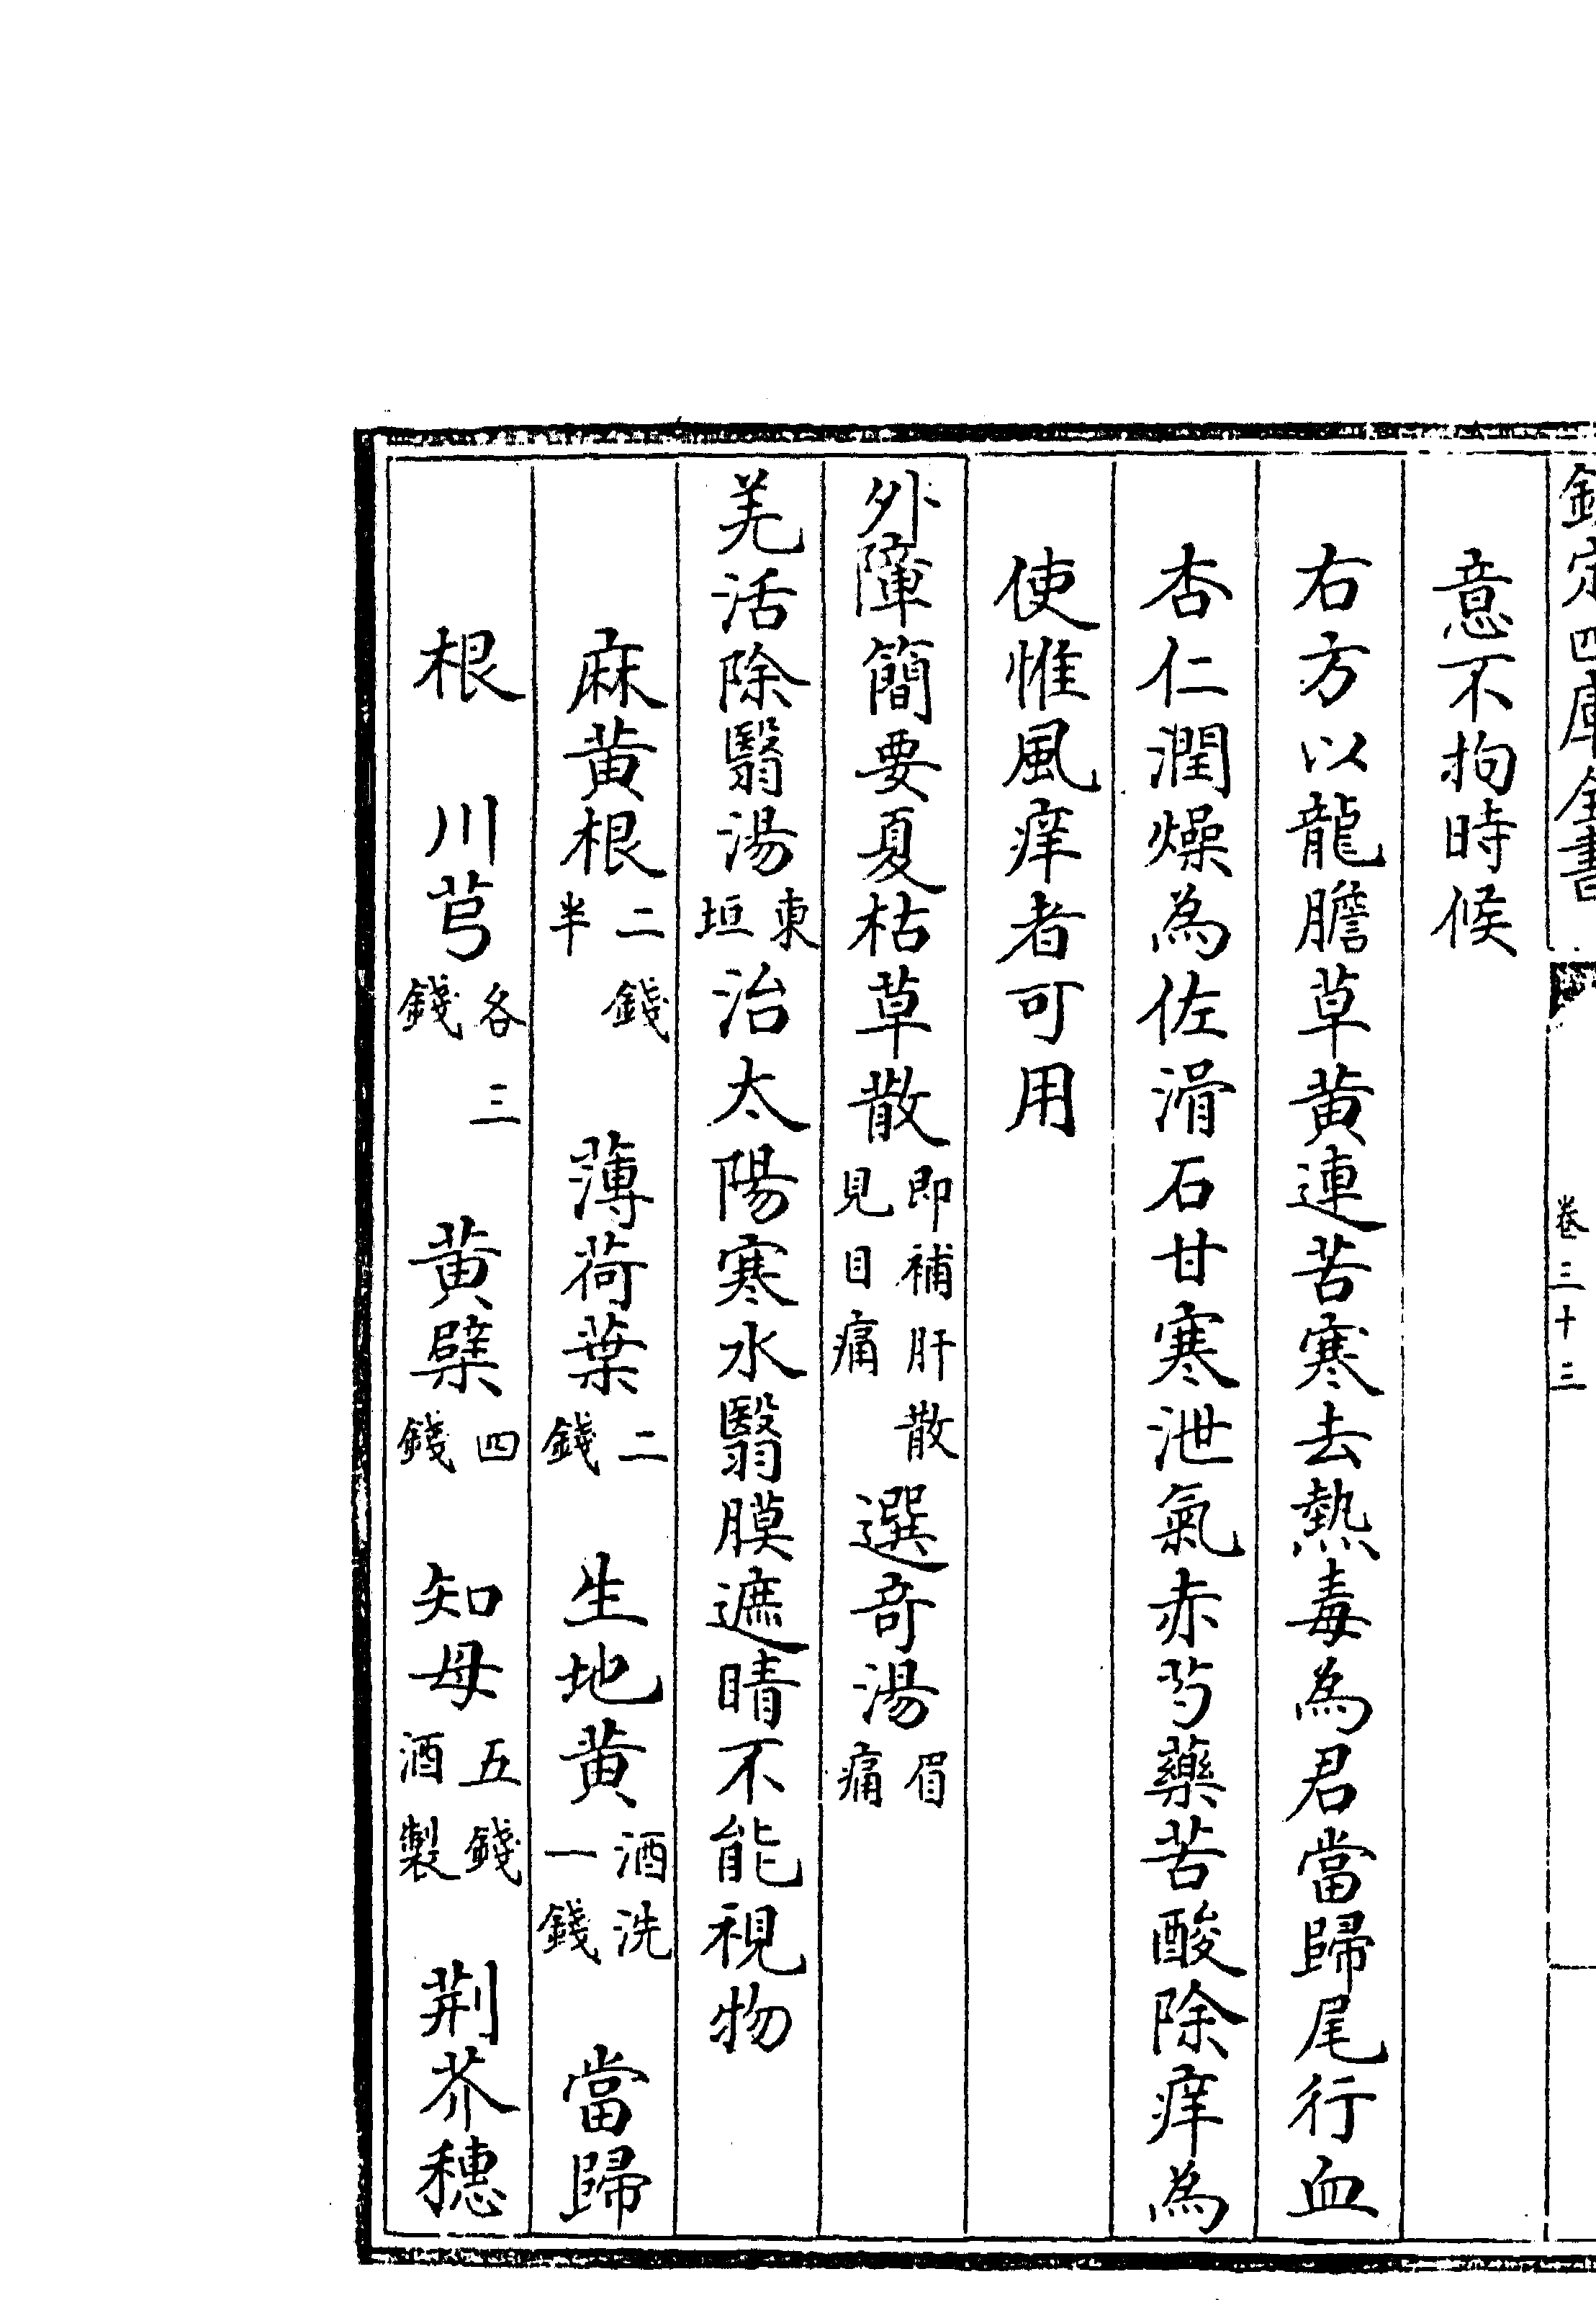 欽定四庫全書 卷三十三
意不拘時候
右方以龍膽草黄連苦寒去熱毒為君當歸尾行血
杏仁潤燥為佐滑石甘寒泄氣赤芍藥苦酸除痒為
使惟風痒者可用
外障簡要夏枯草散即補肝散見目痛選奇湯眉痛
羌活除翳湯東垣治太陽寒水翳膜遮睛不能視物
麻黄根二錢半 薄荷葉二錢 生地黄酒洗一錢 當歸
根 川芎各三錢 黄蘗四錢 知母五錢酒製 荆芥穗